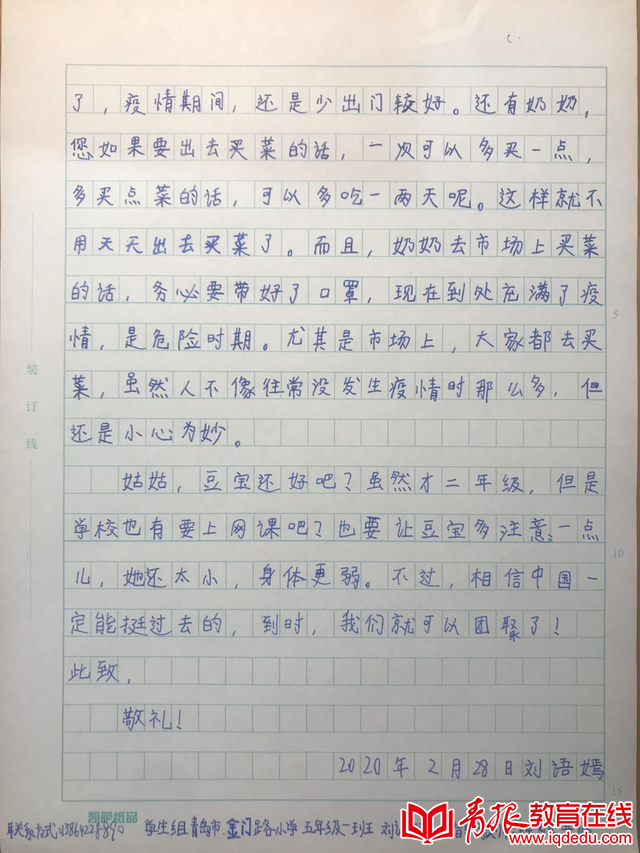 了，疫情期间，还是少出门较好。还有奶奶，
您如果要出去买菜的话，一次可以多买一点，
多买点菜的话，可以多吃一两天呢。这样就不
用天天出去买菜了。而且，奶奶去市场上买菜
的话，务必要带好了口罩，现在到处充满了疫
情，是危险时期。尤其是市场上，大家都去买
菜，虽然人不像往常没发生疫情时那么多，但
还是小心为妙。
姑姑，豆宝还好吧？虽然才二年级，但是
学校也有要上网课吧？也要让豆宝多注意一点
儿，她还太小，身体更弱。不过，相信中国一
定能挺过去的，到时，我们就可以团聚了！
此致，
敬礼！
2020年2月28日刘语嫣
装订线
5
10
15
凯萨纸品
联系方式：13864228890 学生组青岛市金门路小学五年级一班 刘
青报教育在线
www.iqdedu.com